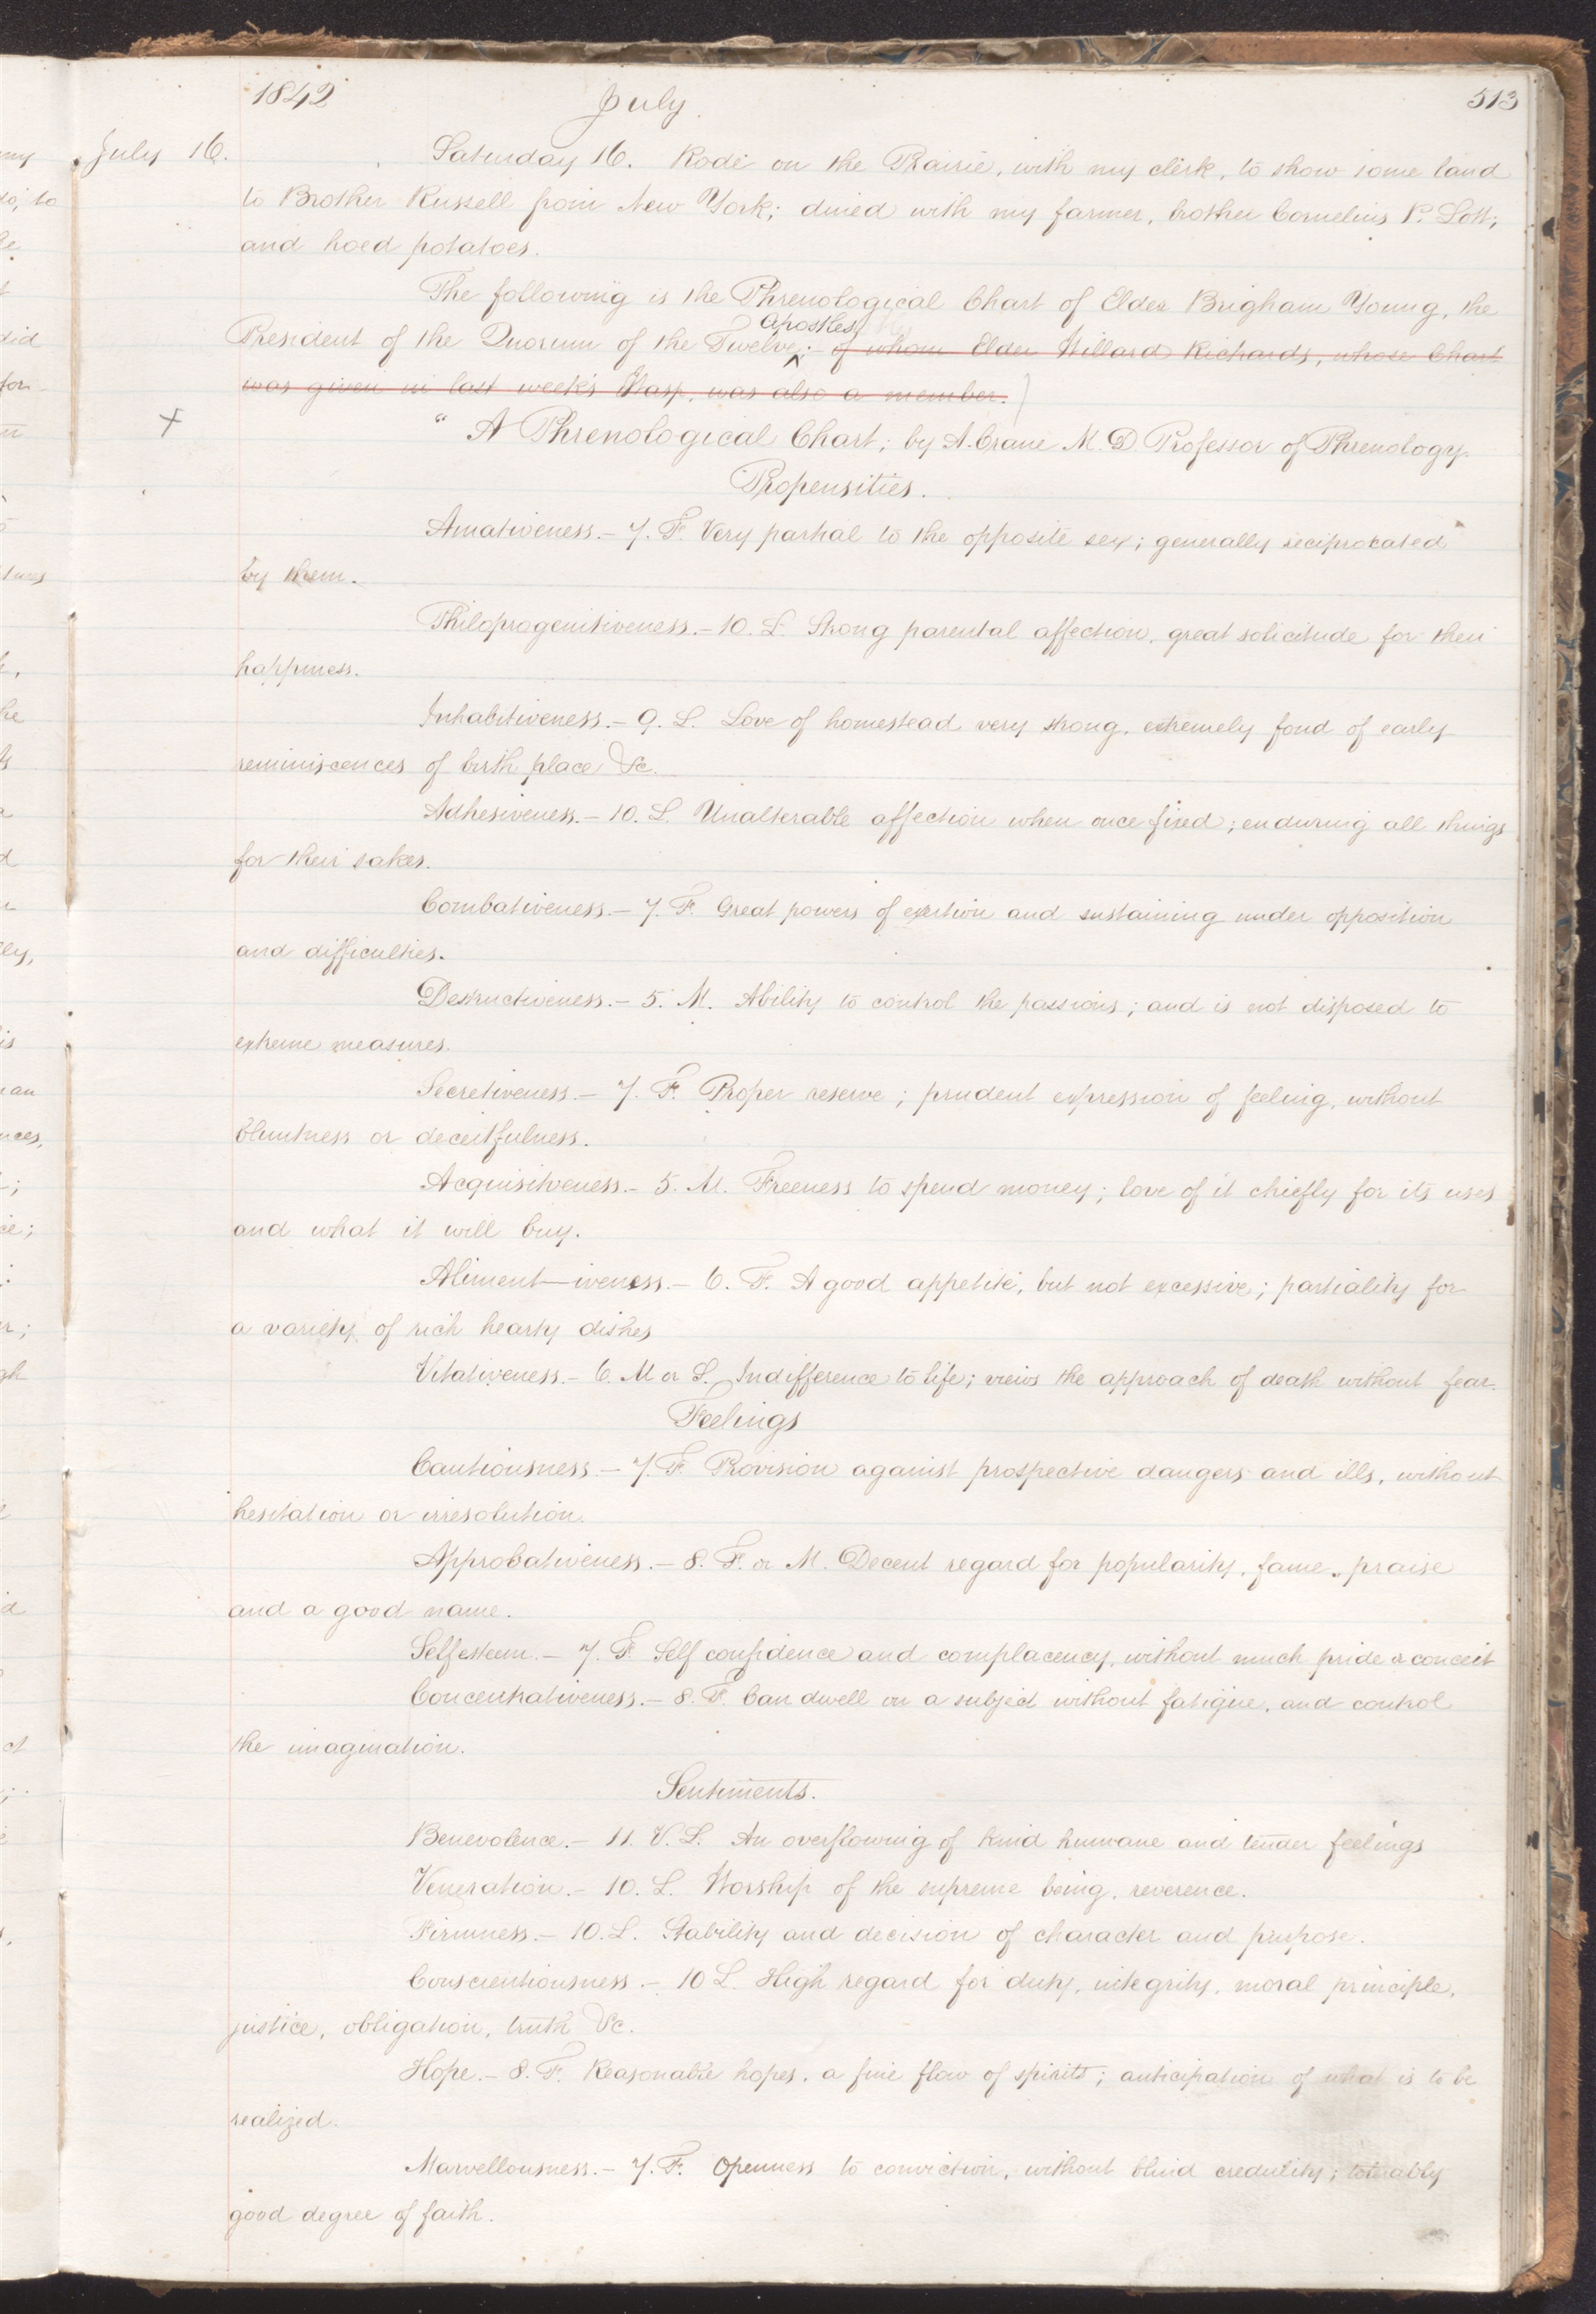 1842 July 513
July 16. Saturday 16. Rode on the Prairie, with my clerk, to show some land
to Brother Russell from New York; dined with my farmer, brother Cornelius P. Lott;
and hoed potatoes.
The following is the Phrenological Chart of Elder Brigham Young, the
apostles
President of the Quorum of the Twelve; - of whom Elder Willard Richards, whose Chart
was given in last week's Wasp, was also a member.)
+ "A Phrenological Chart; by A. Crane M.D. Professor of Phrenology.
Propensities.
Amativeness. - 7. F. Very partial to the opposite sex; generally reciprocated
by them.
Philoprogenitiveness. - 10. L. Strong parental affection, great solicitude for their
happiness.
Inhabitiveness. - 9. L. Love of homestead very strong, extremely fond of early
reminiscences of birth place &c.
Adhesiveness. - 10. L. Unalterable affection when once fixed; enduring all things
for their sakes.
Combativeness. - 7. F. Great powers of exertion and sustaining under opposition
and difficulties.
Destructiveness. - 5. M. Ability to control the passions; and is not disposed to
extreme measures.
Secretiveness. - 7. F. Proper reserve; prudent expression of feeling, without
bluntness or deceitfulness.
Acquisitiveness. - 5. M. Freeness to spend money; love of it chiefly for its uses
and what it will buy.
Aliment-iveness. - 6. F. A good appetite, but not excessive; partiality for
a variety of rich hearty dishes
Vitativeness. - 6. M or S. Indifference to life; views the approach of death without fear.
Feelings
Cautiousness. - 7. F. Provision against prospective dangers and ills, without
hesitation or irresolution.
Approbativeness. - 8. F. or M. Decent regard for popularity, fame, praise
and a good name.
Selfesteem. - 7. F. Self confidence and complacency, without much pride or conceit
Concentrativeness. - 8. F. Can dwell on a subject without fatigue, and control
the imagination.
Sentiments.
Benevolence. - 11. V. L. An overflowing of kind humane and tender feelings
Veneration. - 10. L. Worship of the supreme being, reverence.
Firmness. - 10. L. Stability and decision of character and purpose.
Conscientiousness. - 10 L. High regard for duty, integrity, moral principle,
justice, obligation, truth &c.
Hope. - 8. F. Reasonable hopes, a fine flow of spirits; anticipation of what is to be
realized.
Marvellousness. - 7. F. Openness to conviction, without blind credulity; tolerably
good degree of faith.